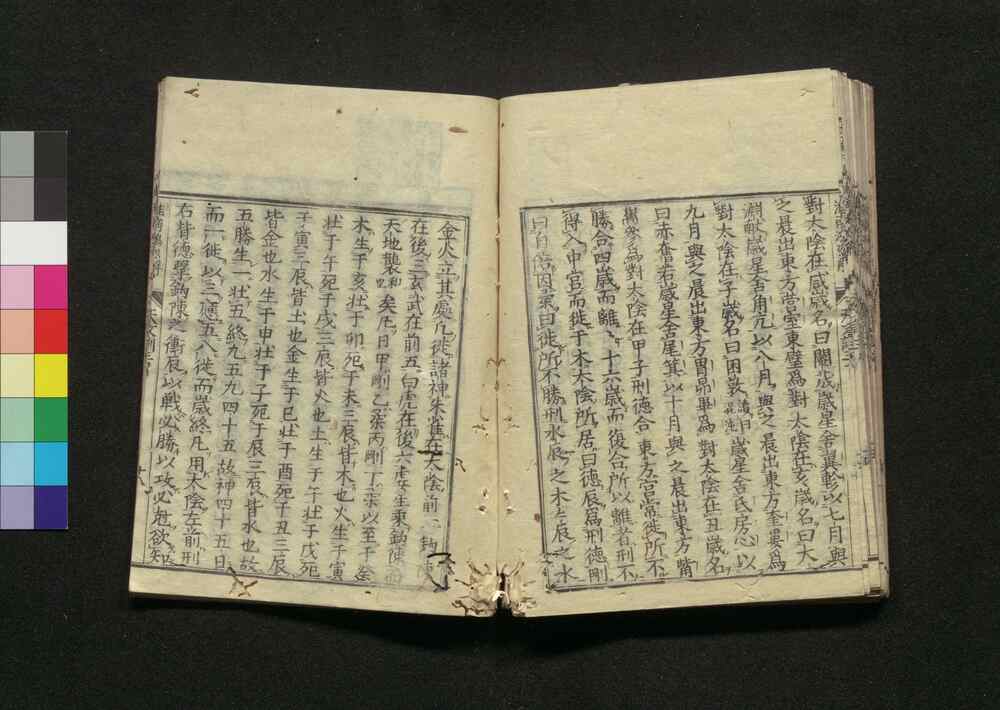 對太陰在戌歲名曰閹茂歲星舍翼軫以七月與
之晨出東方營室東壁為對太陰在亥歲名曰大
淵獻歲星舍角亢以八月與之晨出東方奎婁為
對太陰在子歲名曰困敦讀曰混沌歲星舍氐房心以
九月與之晨出東方胃昴畢為對太陰在丑歲名
曰赤奮若歲星舍尾箕以十月與之晨出東方觜
觿參為對太陰在甲子刑德合東方宮常徙所不
勝合四歲而離十六歲而復合所以離者刑不
得入中宮而徙于木太陰所居曰德辰為刑德剛
曰自倍因柔曰徙所不勝刑水辰之木木辰之水
金火立其處凡徙諸神朱雀在太陰前一鉤陳
在後三玄武在前五白虎在後六虛星乘鉤陳而
天地襲和也矣凡日甲剛乙柔丙剛丁柔以至于癸
木生于亥壯于卯死于未三辰皆木也火生于寅
壯于午死于戌三辰皆火也土生于午壯于戌死
于寅三辰皆土也金生于巳壯于酉死于丑三辰
皆金也水生于申壯于子死于辰三辰皆水也故
五勝生一壯五終九五九四十五故神四十五日
而一徙以三應五八徙而歲終凡用太陰左前刑
右背德擊鉤陳之衝辰以戰必勝以攻必剋欲知